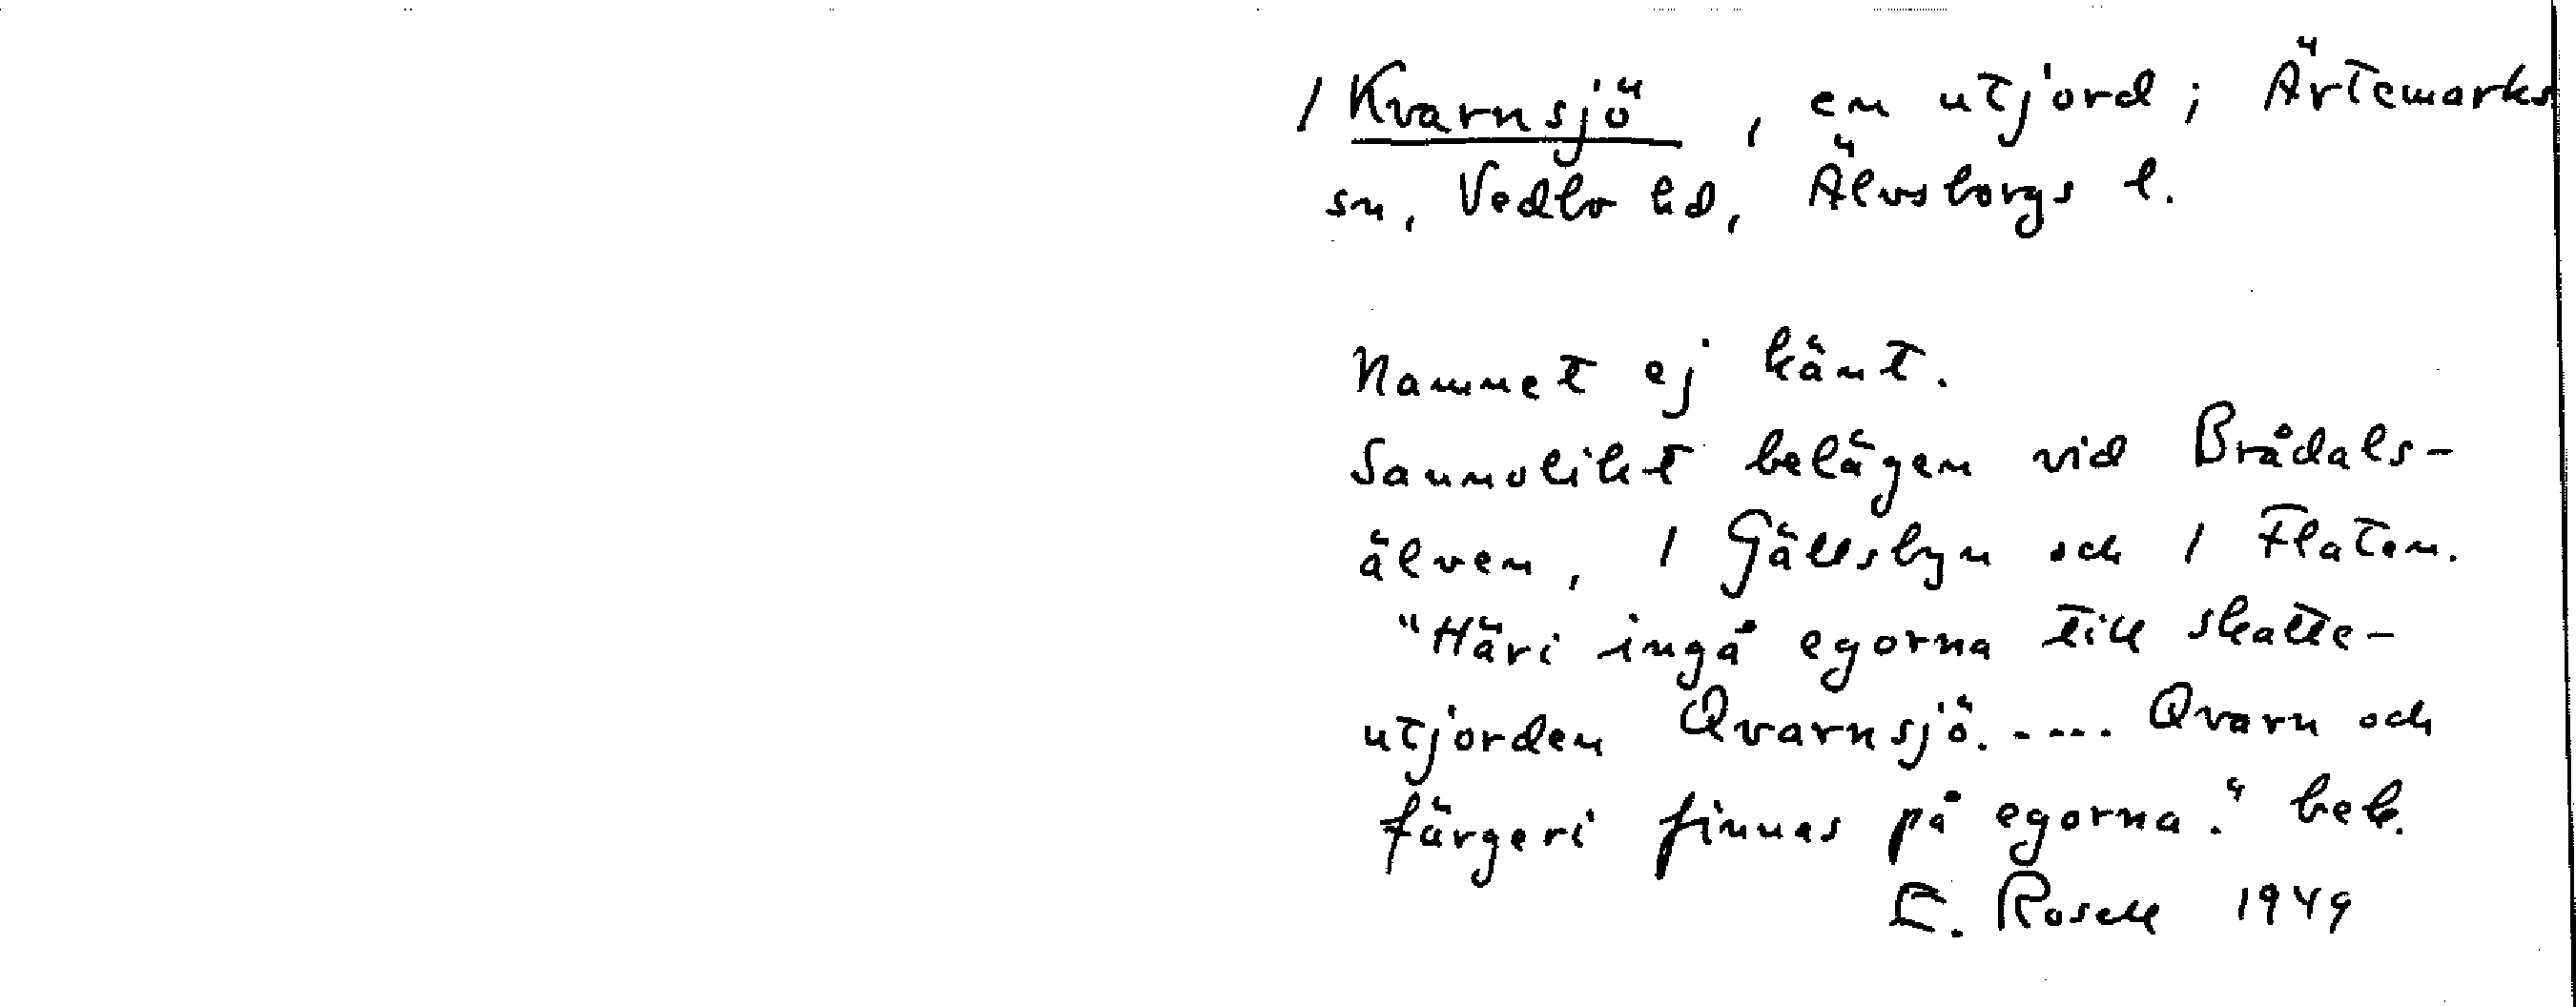 1 Kvarnsjö, en utjord; Ärtemarks
sn, Vedbo hd, Älvsborgs l.
Namnet ej känt.
Sannolikt belägen vid Brådals-
älven, 1 Gällsbyn och 1 Flaten.
"Häri ingå egorna till skatte-
utjorden Qvarnsjö. .... Qvarn och
färgeri finnas på egorna." beb.
E. Rosell 1949